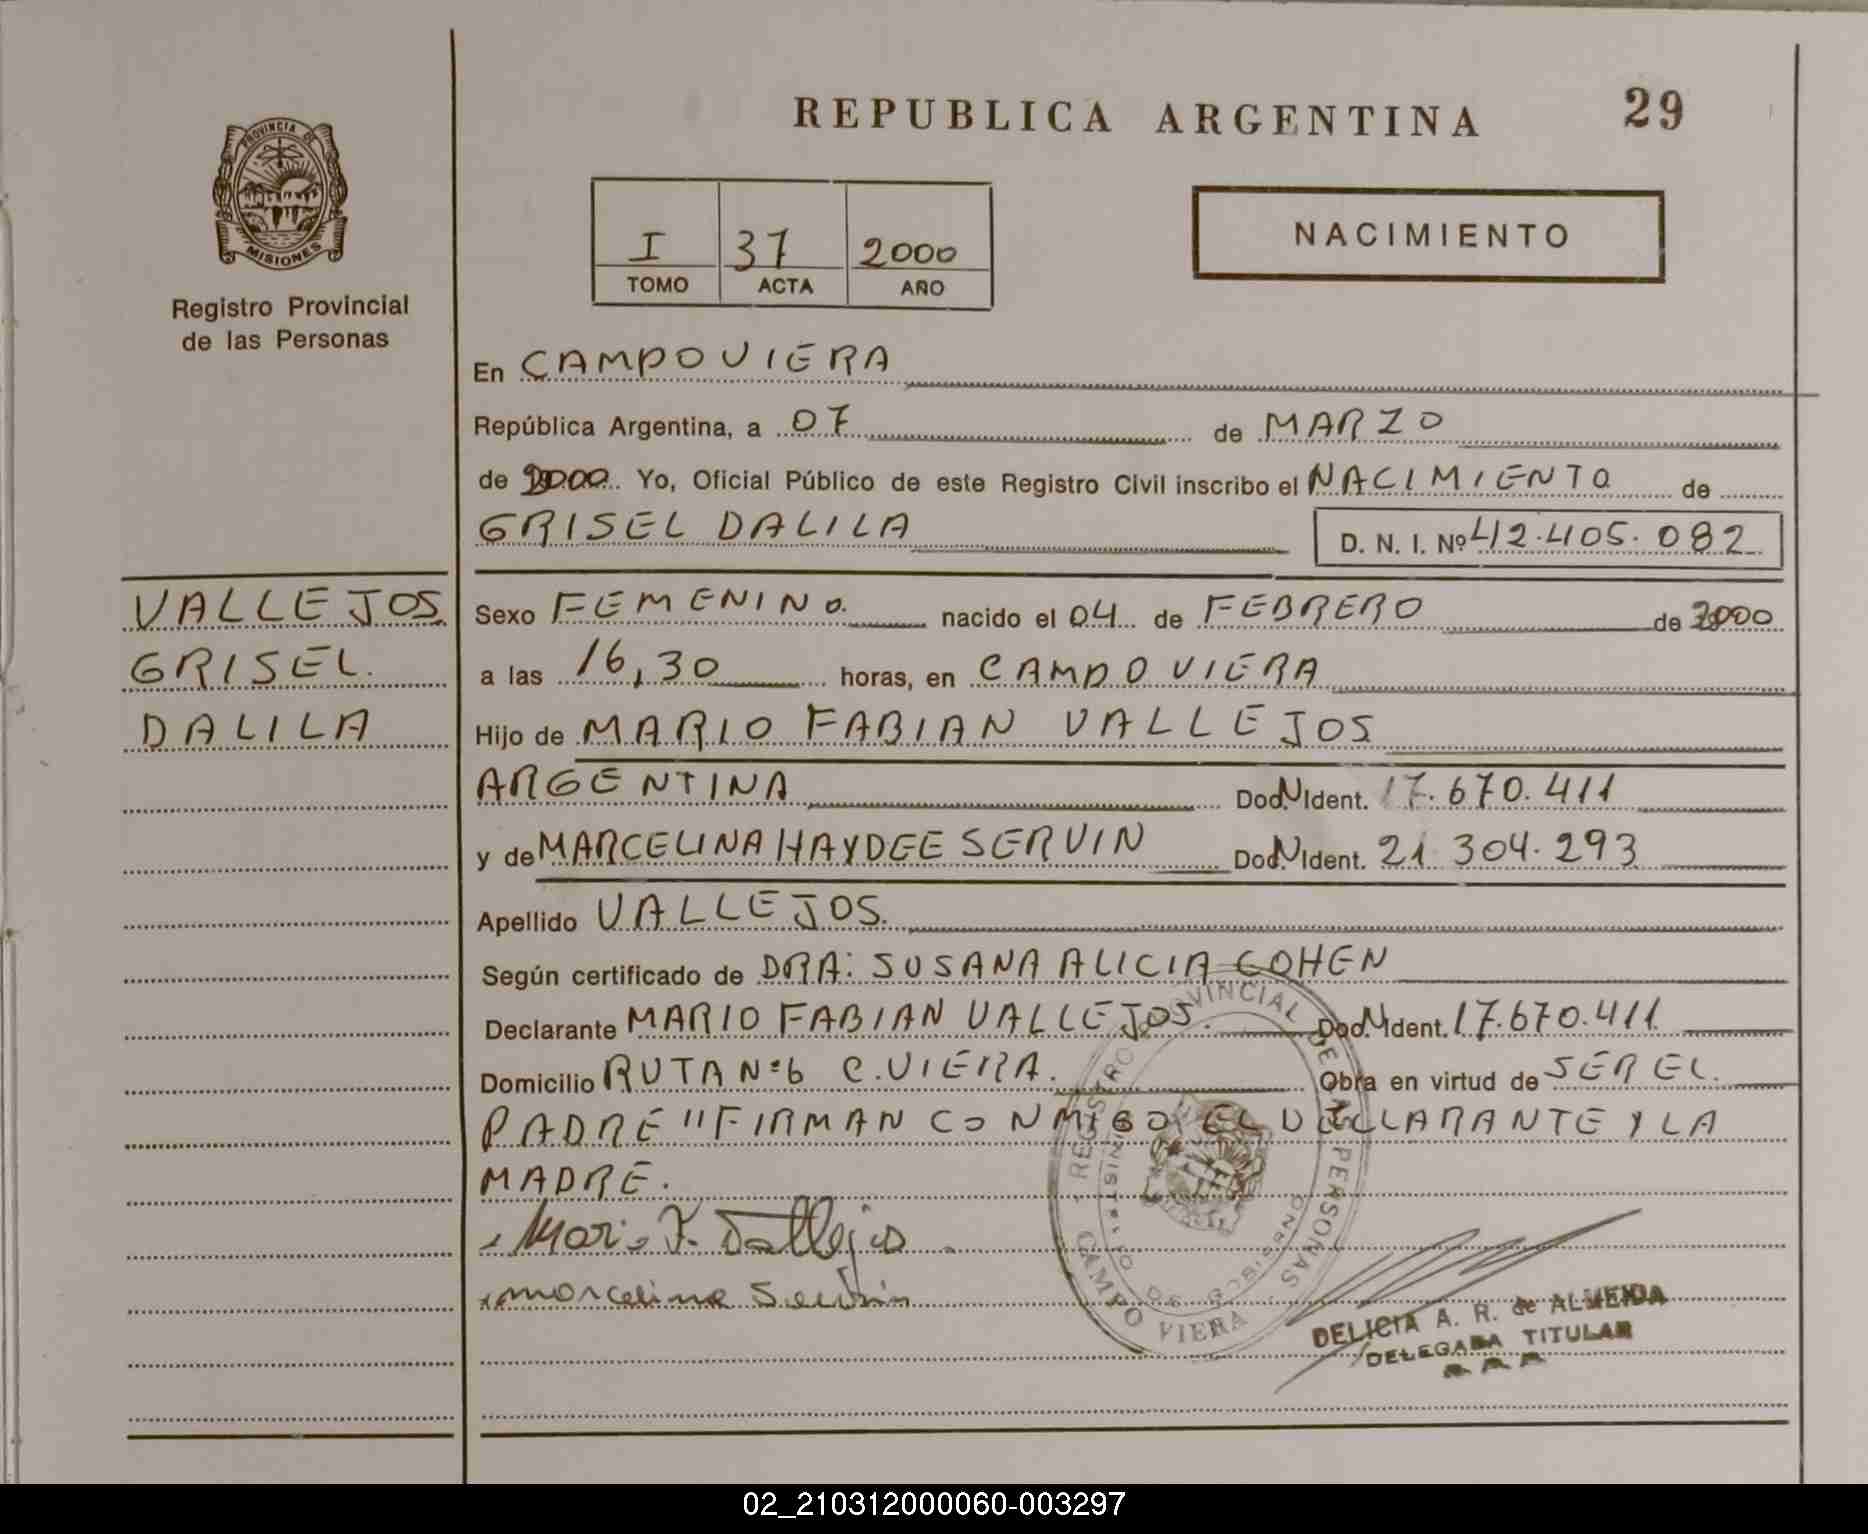 REPUBLICA ARGENTINA
29
PROVINCIA DE
MISIONES
Registro Provincial
de las Personas
I 37 2000
TOMO ACTA AÑO
NACIMIENTO
En CAMPO VIERA
República Argentina, a 07 de MARZO
de 2000 Yo, Oficial Público de este Registro Civil inscribo el NACIMIENTO de
GRISEL DALILA D. N. I. Nº 42.405.082
VALLEJOS.
GRISEL.
DALILA
Sexo FEMENINO. nacido el 04 de FEBRERO de 2000
a las 16,30 horas, en CAMPO VIERA
Hijo de MARIO FABIAN VALLEJOS
ARGENTINA Doc. N Ident. 17.670.411
y de MARCELINA HAYDEE SERVIN Doc. N Ident. 21 304.293
Apellido VALLEJOS.
Según certificado de DRA: SUSANA ALICIA COHEN
Declarante MARIO FABIAN VALLEJOS. Doc. N Ident. 17.670.411
Domicilio RUTA Nº6 C.VIERA. Obra en virtud de SER EL
PADRE "FIRMAN CONMIGO EL DECLARANTE Y LA
MADRE.
Mario F. Vallejos
Marcelina Servin
REGISTRO PROVINCIAL DE LAS PERSONAS
MINISTERIO DE GOBIERNO
CAMPO VIERA
DELICIA A. R. de ALMEIDA
DELEGADA TITULAR
02_210312000060-003297